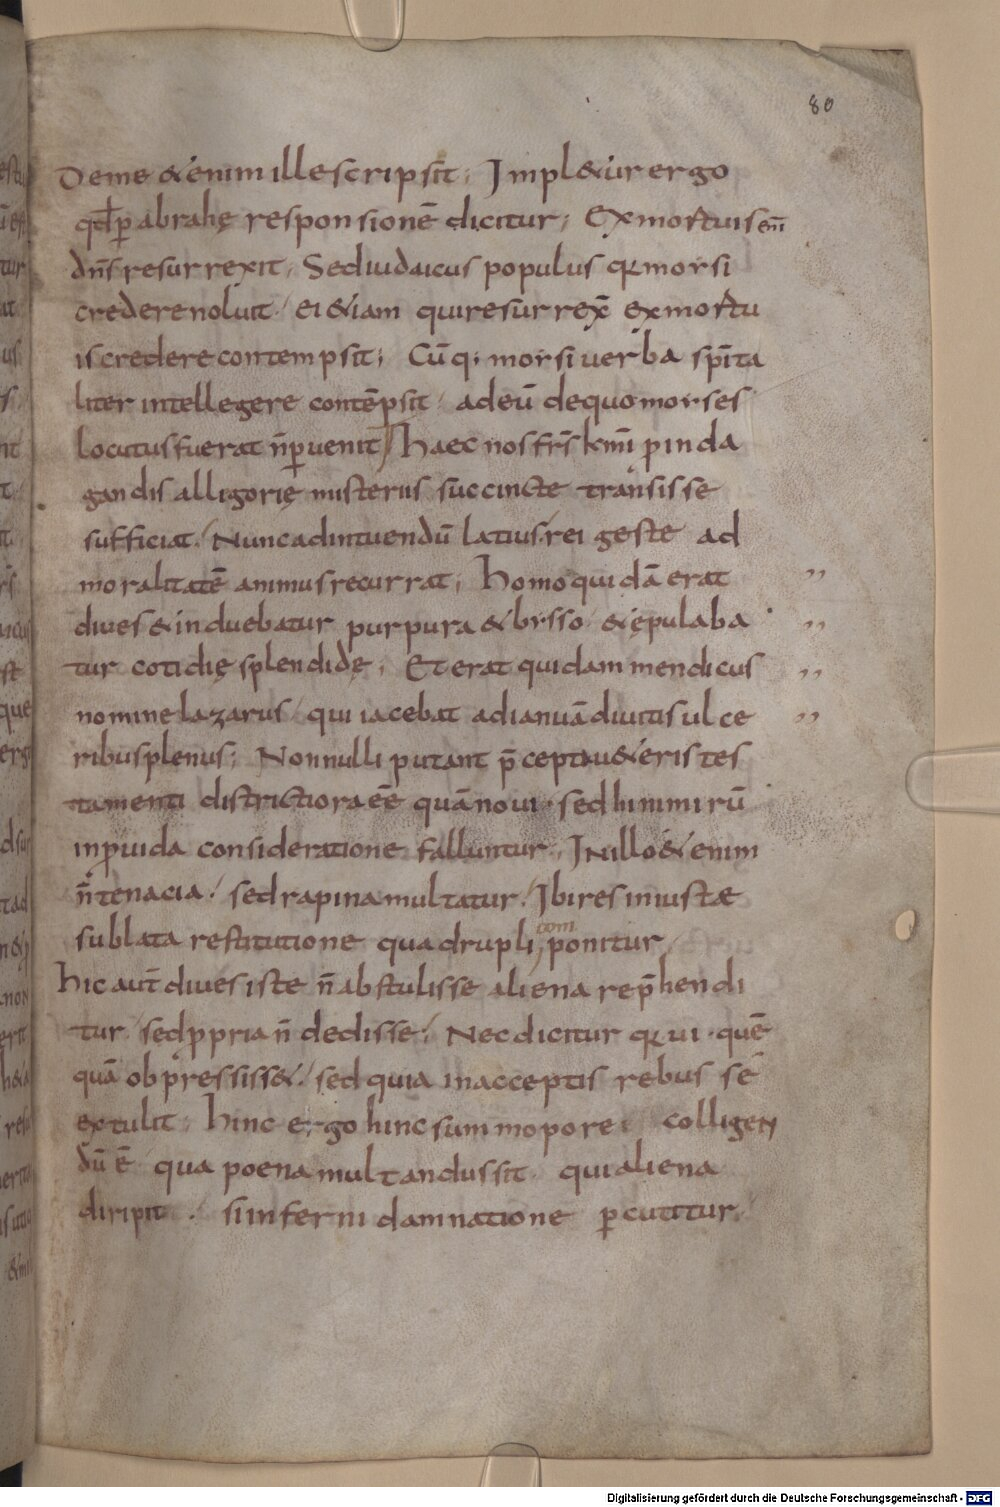 80
De me &enim ille scripsit; Impl&ur ergo
qd p̄ abrahę responsionē dicitur; Ex mortuis eni
dn̄s resurrexit; Sed iudaicus populus q̄ morsi
credere noluit / ei &iam qui resurrex̄ ex mortu
is credere contempsit; Cūq; morsi uerba sp̄ita
liter intellegere contēpsit / ad eū de quo morses
locutus fuerat n̄ p̄uenit / haec nos fr̄s km̄i p̄ inda
gandis alligorię misteriis succincte transisse
sufficiat / Nunc ad intuendū latius rei geste ad
moralitatē animus recurrat; Homo quidā erat ,,
diues & induebatur purpura & bysso / & ępulaba ,,
tur cotidię splendidę; Et erat quidam mendicus ,,
nomine lazarus / qui iacebat ad ianuā diuitis ulce ,,
ribus plenus; Nonnulli putant p̄cepta u&eris tes
tamenti districtiora eē quā noui · sed hi nimirū
inprouida consideratione falluntur; In illo &enim
n̄ tenacia / sed rapina multatur / Ibi res iniustae
sublata restitutione quadrupli ponitur
com
hic aut̄ diues iste n̄ abstulisse aliena rep̄hendi
tur / sed ppria n̄ dedisse / Nec dicitur q̄ ui · quē
quā obpressiss& / sed quia in acceptis rebus sē
extulit; hinc ergo hinc summopore colligen
dū ē qua poena multandus sit qui aliena
diripit / si inferni damnatione p̄cutitur
Digitalisierung gefördert durch die Deutsche Forschungsgemeinschaft - DFG